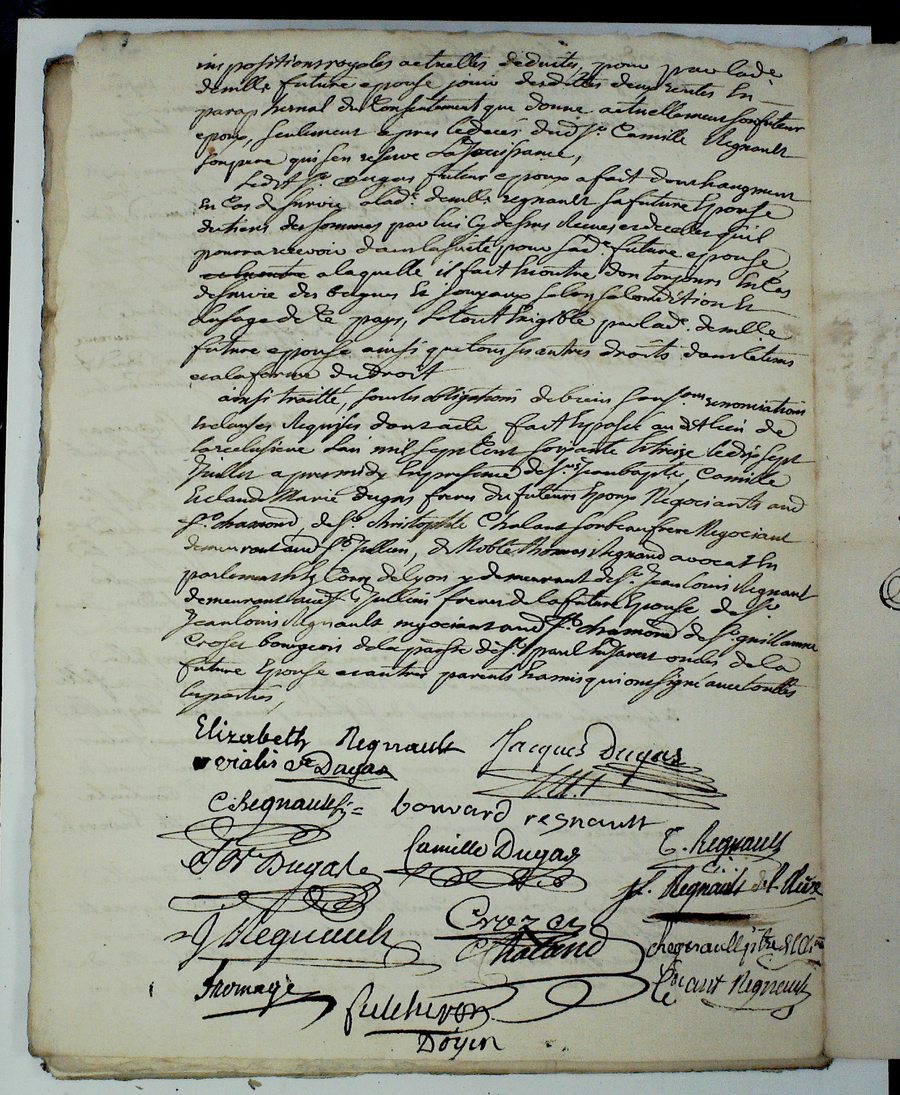 impositions royales actuelles deduits, pour par lade
demlle future epouse jouir desdittes deux rentes en
paraphernal du Consentement que donne actuellement son futur
epoux, seulement apres le decés dud Sr. Camille Regnault
son pere qui s'en reserve la Jouissance,
Ledit Sr Dugas futur epoux a fait don et augment
En Cas de Survie a lade. demlle regnault sa future Epouse
du tiers des sommes par lui Cy dessus Reçues et de celles qu'il
pourra recevoir dans la suite pour sade. future epouse,
a laquelle il fait En outre don toujours En Cas
de survie des bagues Et Joyaux selon sa Condition Et
Lusage de Ce pays, Le tout Exigible par lade. demlle
future epouse ainsi que tous ses autres droits dans le tems
et a la forme du Droit
ainsi traitté, sous les obligations de biens Soumissions renonciations
et clauses Requises dont acte, fait & passé aud lieu de
L'an mil sept Cent soixante et treize le dix sept
Juillet apres midy En presence de Srs Jean baptiste, Camille
et Claude Marie Dugas freres du futur Epoux Negociants aud
St. chamond, de Sr. Christophle Chaland son beau frere Negociant
demeurant aud St. Jullien, de Noble Thomas Regnaud avocat En
parlement & Cours de Lyon y demeurant de Sr. Jean Louis Regnaud
demeurant aud St. Jullien freres de la future Epouse de Sr.
Jean Louis Regnault negociant aud St. chamond de Sr. guillaume
Crozet bourgeois de la pnsse de St paul En Jarest oncles de la
future Epouse et autres parents & amis qui ont signé avec touttes
les parties,
Elizabeth Regnault Jacques Dugas
vialis ve Dugas
C: Regnault bonvard regnault
Camille Dugas T. Regnault
Dugas
Regnault de
J Regnault Crozet
Chaland Regnault
Fromage Regnault
Doyen